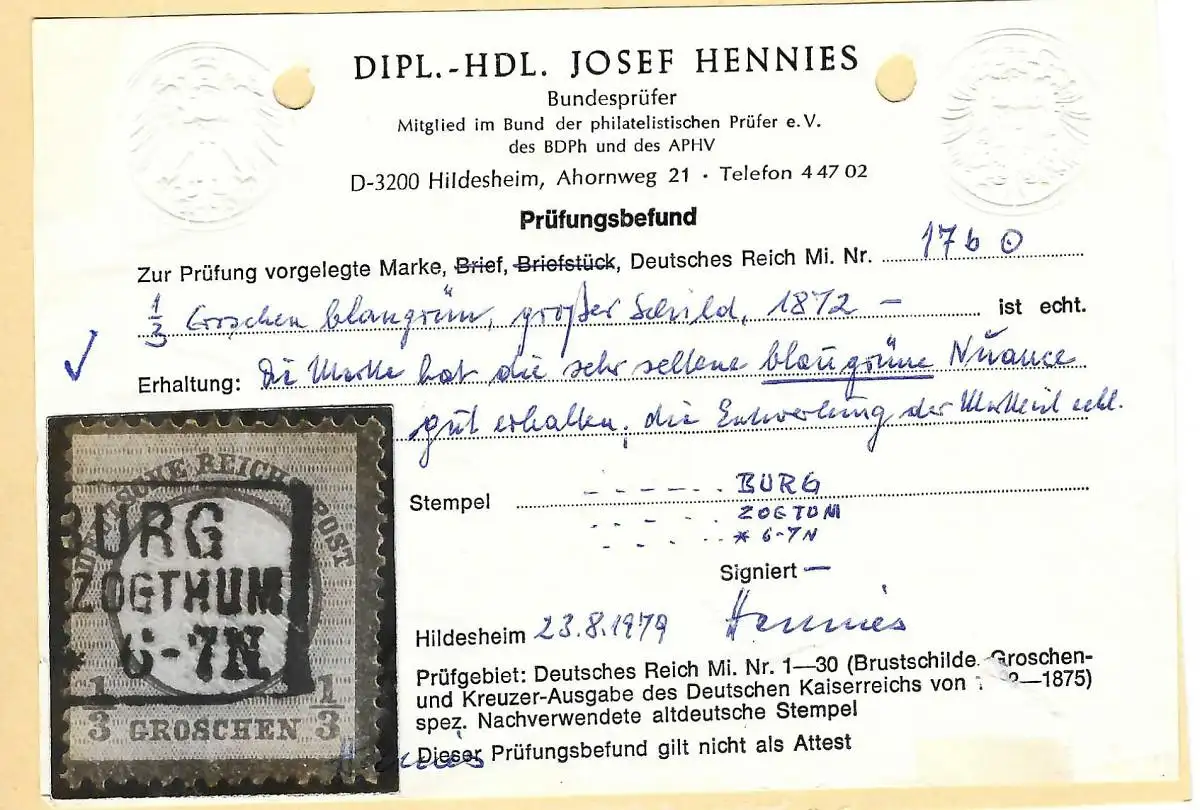 DIPL.-HDL. JOSEF HENNIES
Bundesprüfer
Mitglied im Bund der philatelistischen Prüfer e.V.
des BDPh und des APHV
D-3200 Hildesheim, Ahornweg 21 · Telefon 4 47 02
Prüfungsbefund
Zur Prüfung vorgelegte Marke, Brief, Briefstück, Deutsches Reich Mi. Nr. 17b ⊙
1/3 Groschen blaugrün, großer Schild, 1872 — ist echt.
Erhaltung: Die Marke hat die sehr seltene blaugrüne Nuance
gut erhalten, die Entwertung der Marke ist echt.
Stempel - - - - - . . BURG
. . - - . ZOGTUM
. - - . . . * 6-7N
Signiert —
Hildesheim 23.8.1979 Hennies
Prüfgebiet: Deutsches Reich Mi. Nr. 1—30 (Brustschilde, Groschen-
und Kreuzer-Ausgabe des Deutschen Kaiserreichs von 2—1875)
spez. Nachverwendete altdeutsche Stempel
Dieser Prüfungsbefund gilt nicht als Attest
REICHS POST
BURG
ZOGTHUM
* 6-7N
1/3 GROSCHEN 1/3